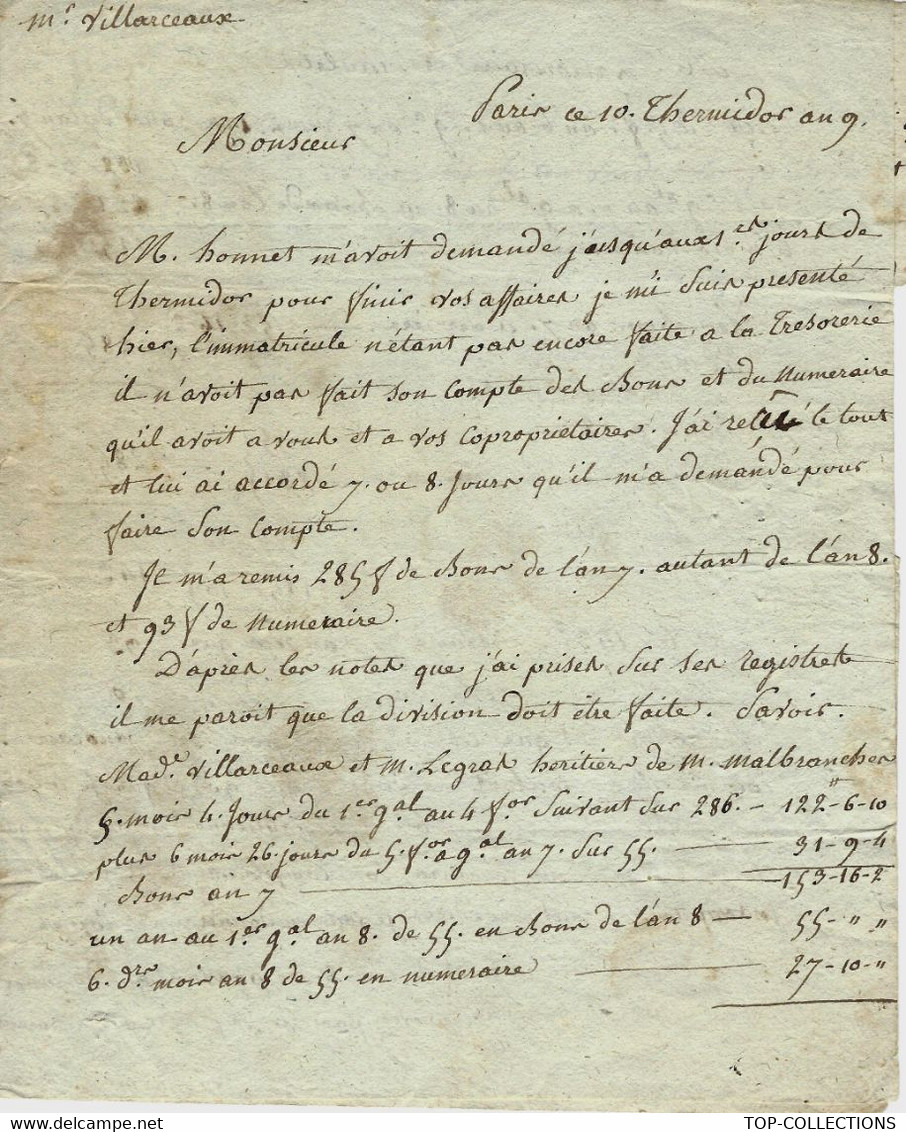 mr Villarceaux
Paris ce 10. Thermidor an 9.
Monsieur
M. honnet m'avoit demandé j'usqu'aux 1ers jours de
Thermidor pour finir vos affaires je m'i suis presenté
hier, l'immatricule n'étant pas encore faite a la Tresorerie
il n'avoit pas fait son compte des Bons et du Numeraire
qu'il avoit a vous et a vos copropriétaires. J'ai le tout
et lui ai accordé 7. ou 8. Jours qu'il m'a demandé pour
faire son compte.
Il m'a remis 285 f de Bons de l'an 7. autant de l'an 8.
et 93 f de Numeraire.
D'après les notes que j'ai prises sur ses registres
il me paroit que la division doit être faite. Savoir.
Made Villarceaux et M. Legras heritiers de M. Malbranches
5. mois 4. Jours du 1er gal au 4 for suivant sur 286. — 122"-6-10
plus 6 mois 26. jours du 5. for a gal an 7. sur 55. — 31-9-4
Bons an 7 — 153-16-2
un an au 1er gal an 8. de 55. en Bons de l'an 8 — 55-"-"
6. drs mois an 8 de 55. en numeraire — 27-10-"
TOP-COLLECTIONS